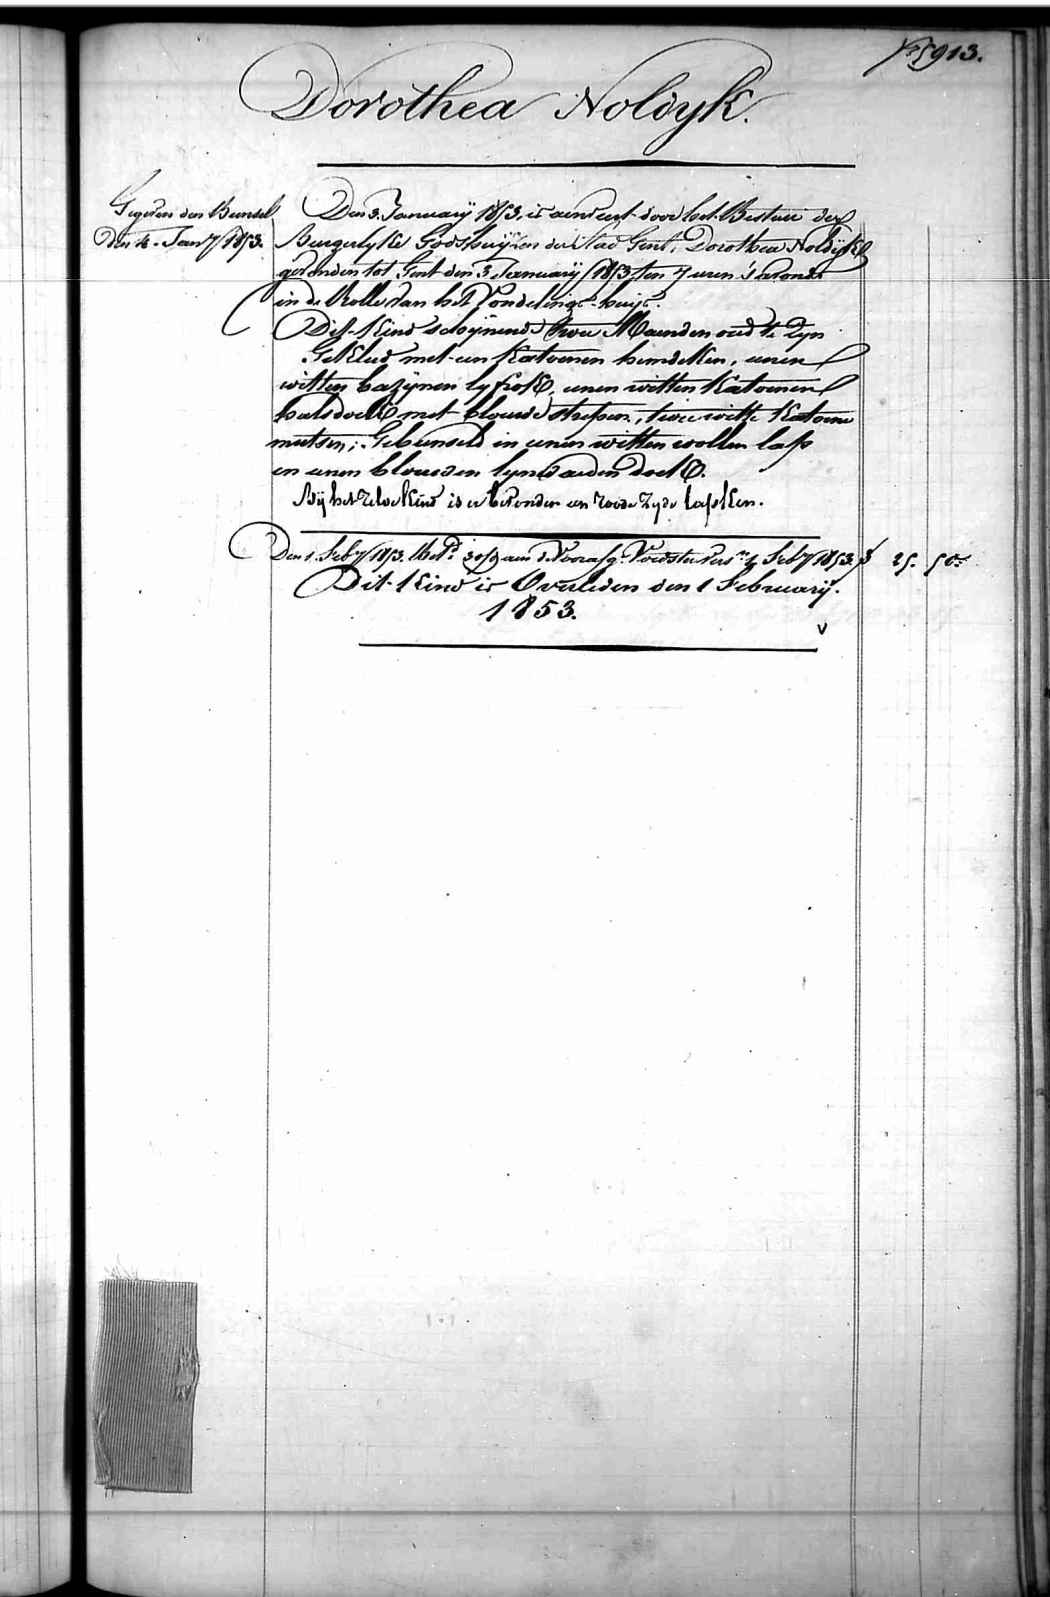 F° 5913.
Dorothea Noldyk.
Gegeven den Bunsel
den 4. Jany 1853.
Den 3. January 1853. is aenveert door het Bestuer der
Burgerlyke Godshuyzen der Stad Gent, Dorothea Noldÿk
gevonden tot Gent den 3 January 1853 ten 7 uren 's avonds
in de Rolle van het Vondelings-huys.
Dit Kind schynende twee Maenden oud te Zyn
Gekleed met een Katoenen hemdeken, eenen
witten bazynen lyfrok, eenen witten Katoenen
halsdoek met blauwe strepen, twee witte Katoene
mutsen, Gebunseld in eenen witten wollen lap
en eenen blauwen lynwaeden doek.
Bÿ het zelve Kind is er bevonden een roode zyde lapken.
Den 1. Feby 1853. aen d. Voedster 1 Feby 1853. 25. 50
Dit Kind is Overleden den 1 February.
1853.